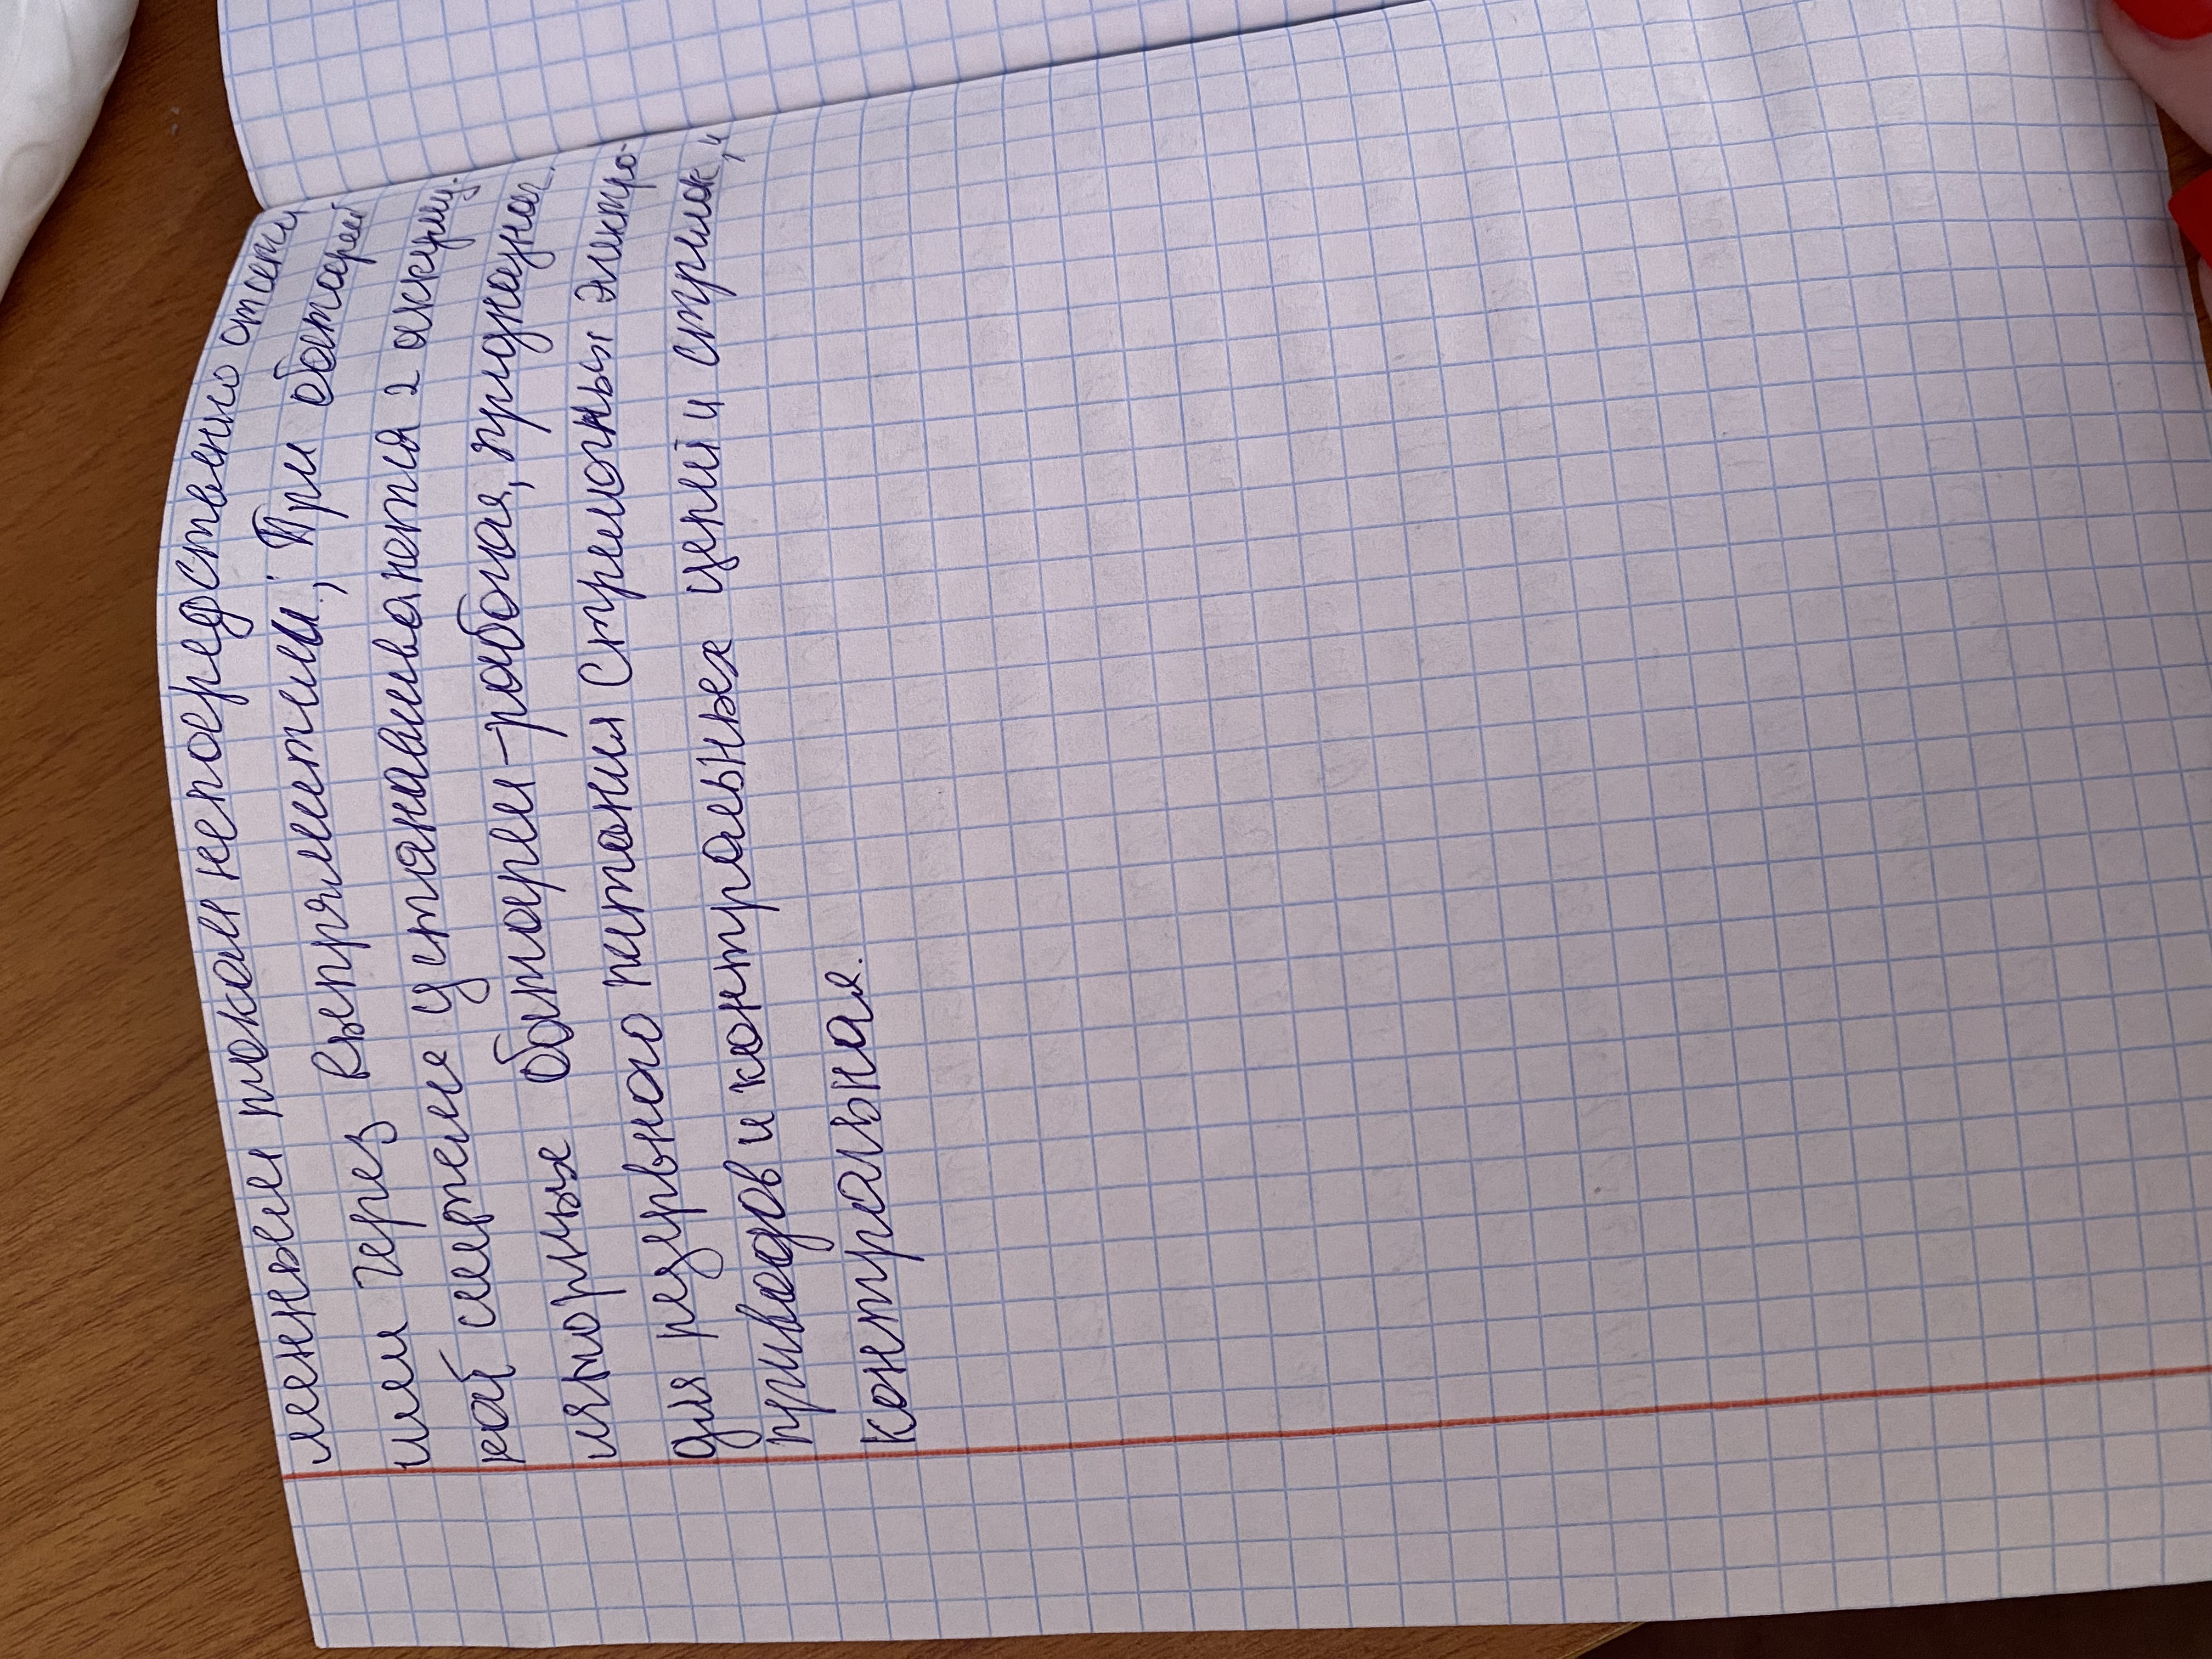 менным током непосредственно от сети
или через выпрямители; При батарей
ной системе устанавливаются 2 аккуму-
ляторных батареи - рабочая, предназнач.
для резервного питания Стрелочных электро-
приводов и контрольных цепей и стрелок, и
контрольная.